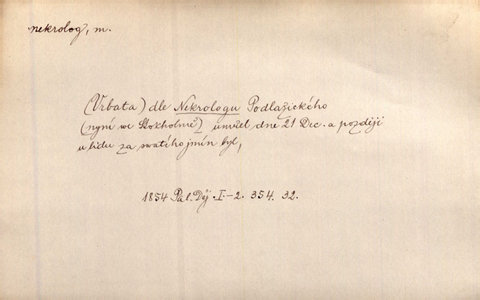 nekrolog, m.
(Vrbata) dle Nekrologu Podlažického
(nyní we Stokholmě) umřel dne 21 Dec. a později
u lidu za swatého jmín byl,
1854 Pal. Děj. I-2. 354. 32.